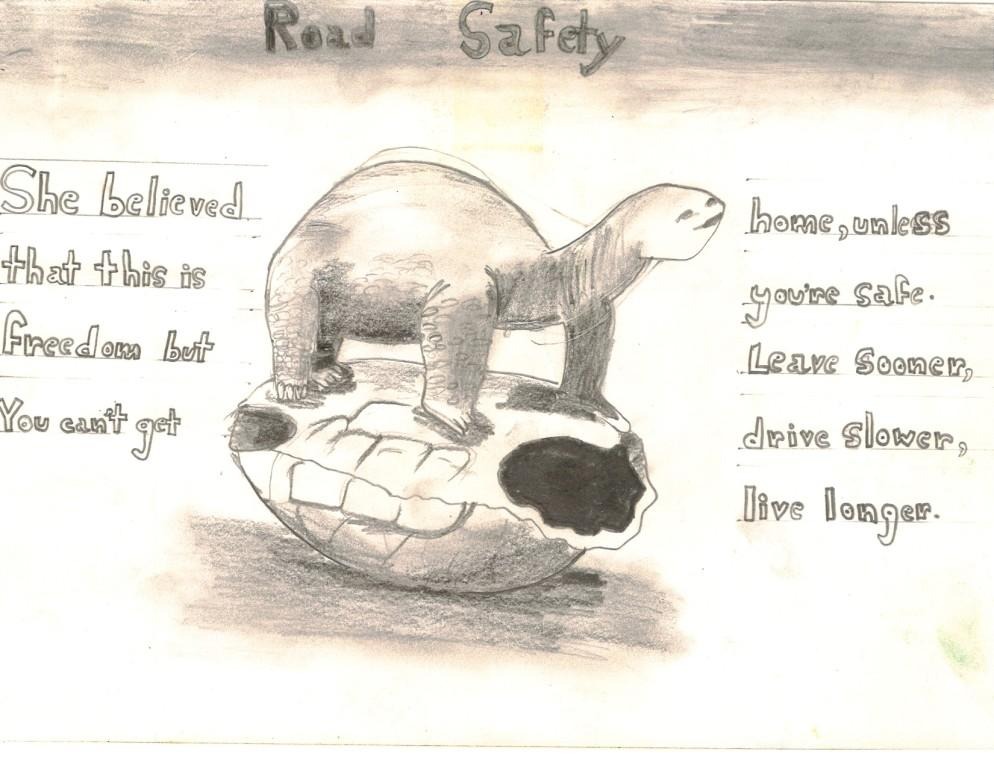 Road Safety
She believed
that this is
freedom but
You can't get
home, unless
you're safe.
Leave sooner,
drive slower,
live longer.